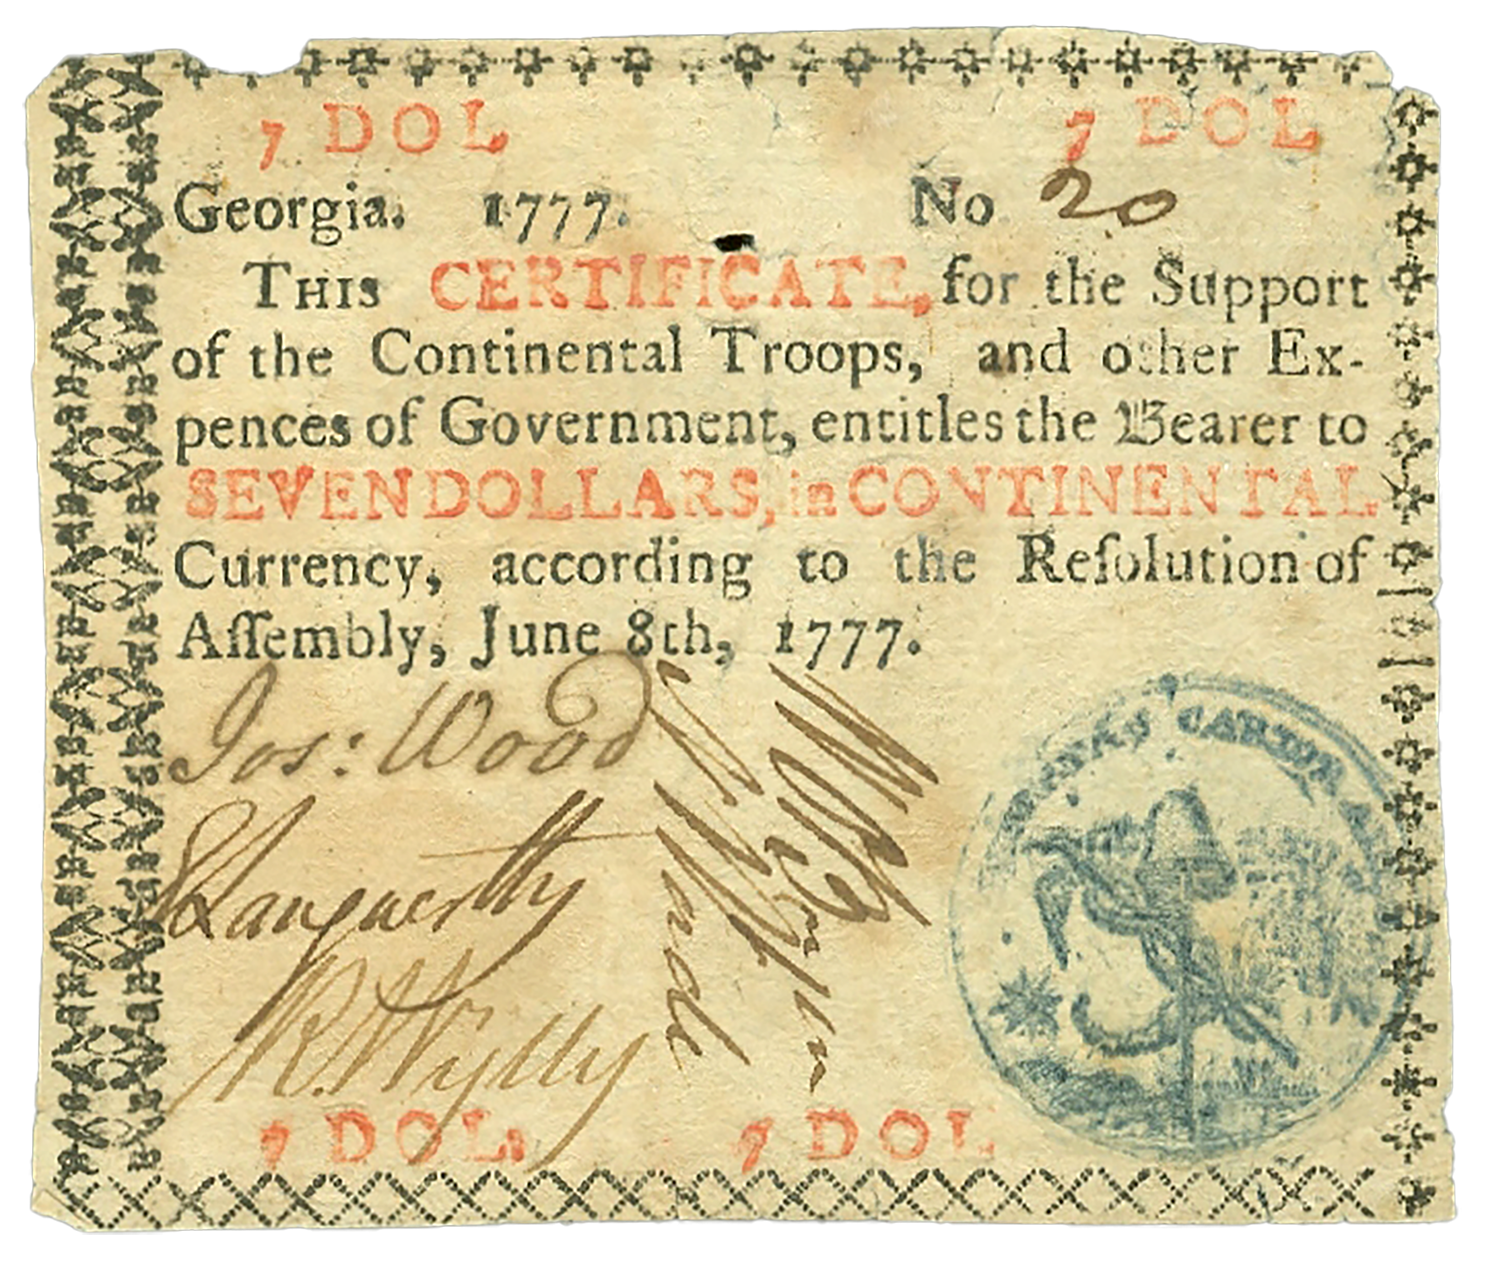 7 DOL 7 DOL
Georgia. 1777. No 20
THIS CERTIFICATE, for the Support
of the Continental Troops, and other Ex-
pences of Government, entitles the Bearer to
SEVEN DOLLARS, in CONTINENTAL
Currency, according to the Reſolution of
Aſſembly, June 8th, 1777.
Jos: Wood
R. Wylly
7 DOL. 7 DOL